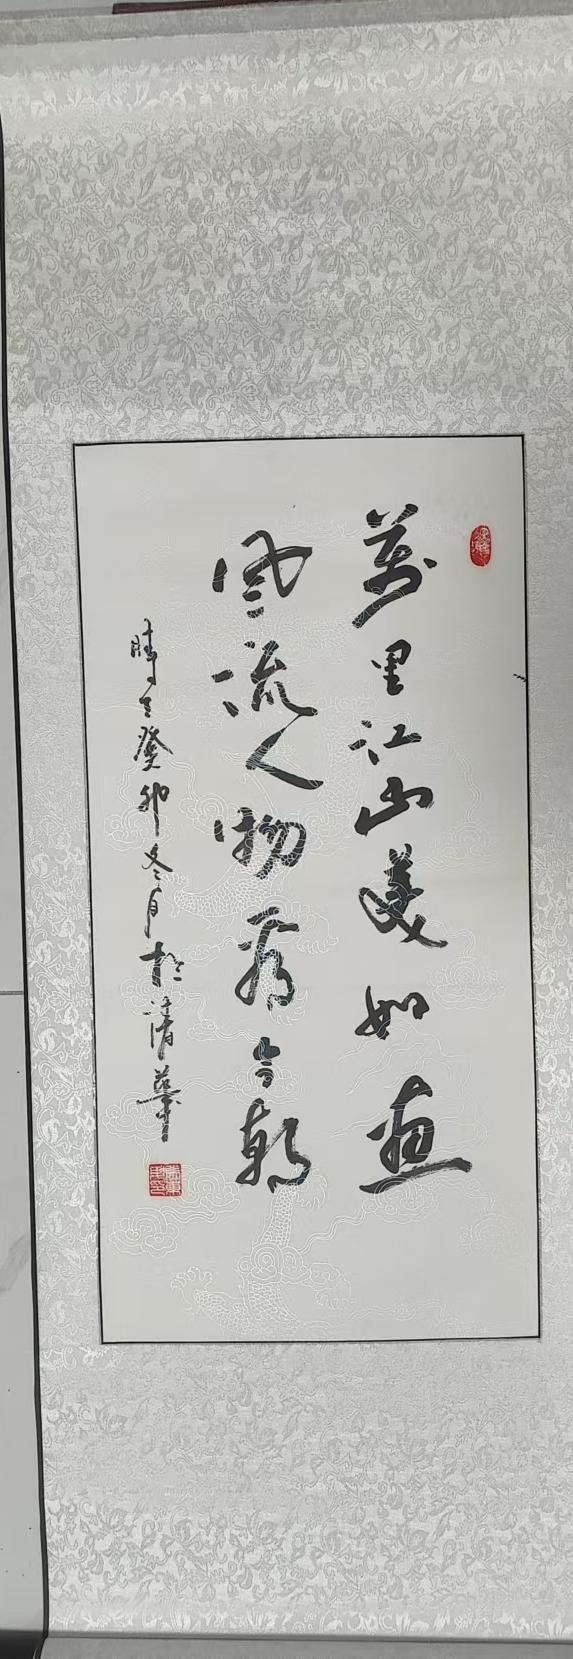 萬里江山美如畫
風流人物看今朝
時在癸卯冬月於清華